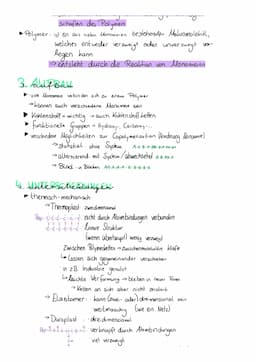 schaften des Polymers
▸ Polymer: ist ein aus vielen Monomeren bestehender Makromolekül,
welches entweder verzweigt oder unverzweigt vor-
liegen kann
→ entsteht durch die Reaktion von Monomeren
3. AUFBAU
▸ viele Monomere verbinden sich zu einem Polymer
→ können auch verschiedene Monomere sein
▸ Kohlenstoff = wichtig → auch Kohlenstoffketten
▸ funktionelle Gruppen → Hydroxy-, Carboxy-...
▸ verschiedene Möglichkeiten zur Copolymerisation
→ statistisch · ohne System
→ alternierend · mit System / abwechselnd
→ Block · in Blöcken
4. UNTERSCHEIDUNGEN
▸ thermisch-mechanisch
→ Thermoplast · zweidimensional
nicht durch Atombindungen verbunden
lineare Struktur
(wenn überhaupt) wenig verzweigt
zwischen Polymerketten → zwischenmolekulare Kräfte
↳ lassen sich gegeneinander verschieben
↳ leichte Verformung → bleiben in neuer Form
→ Ketten an sich aber nicht elastisch
→ Elastomer · kann (zwei- oder) dreidimensional sein
weitmaschig (wie ein Netz)
→ Duroplast · dreidimensional
verknüpft durch Atombindungen
viel verzweigt